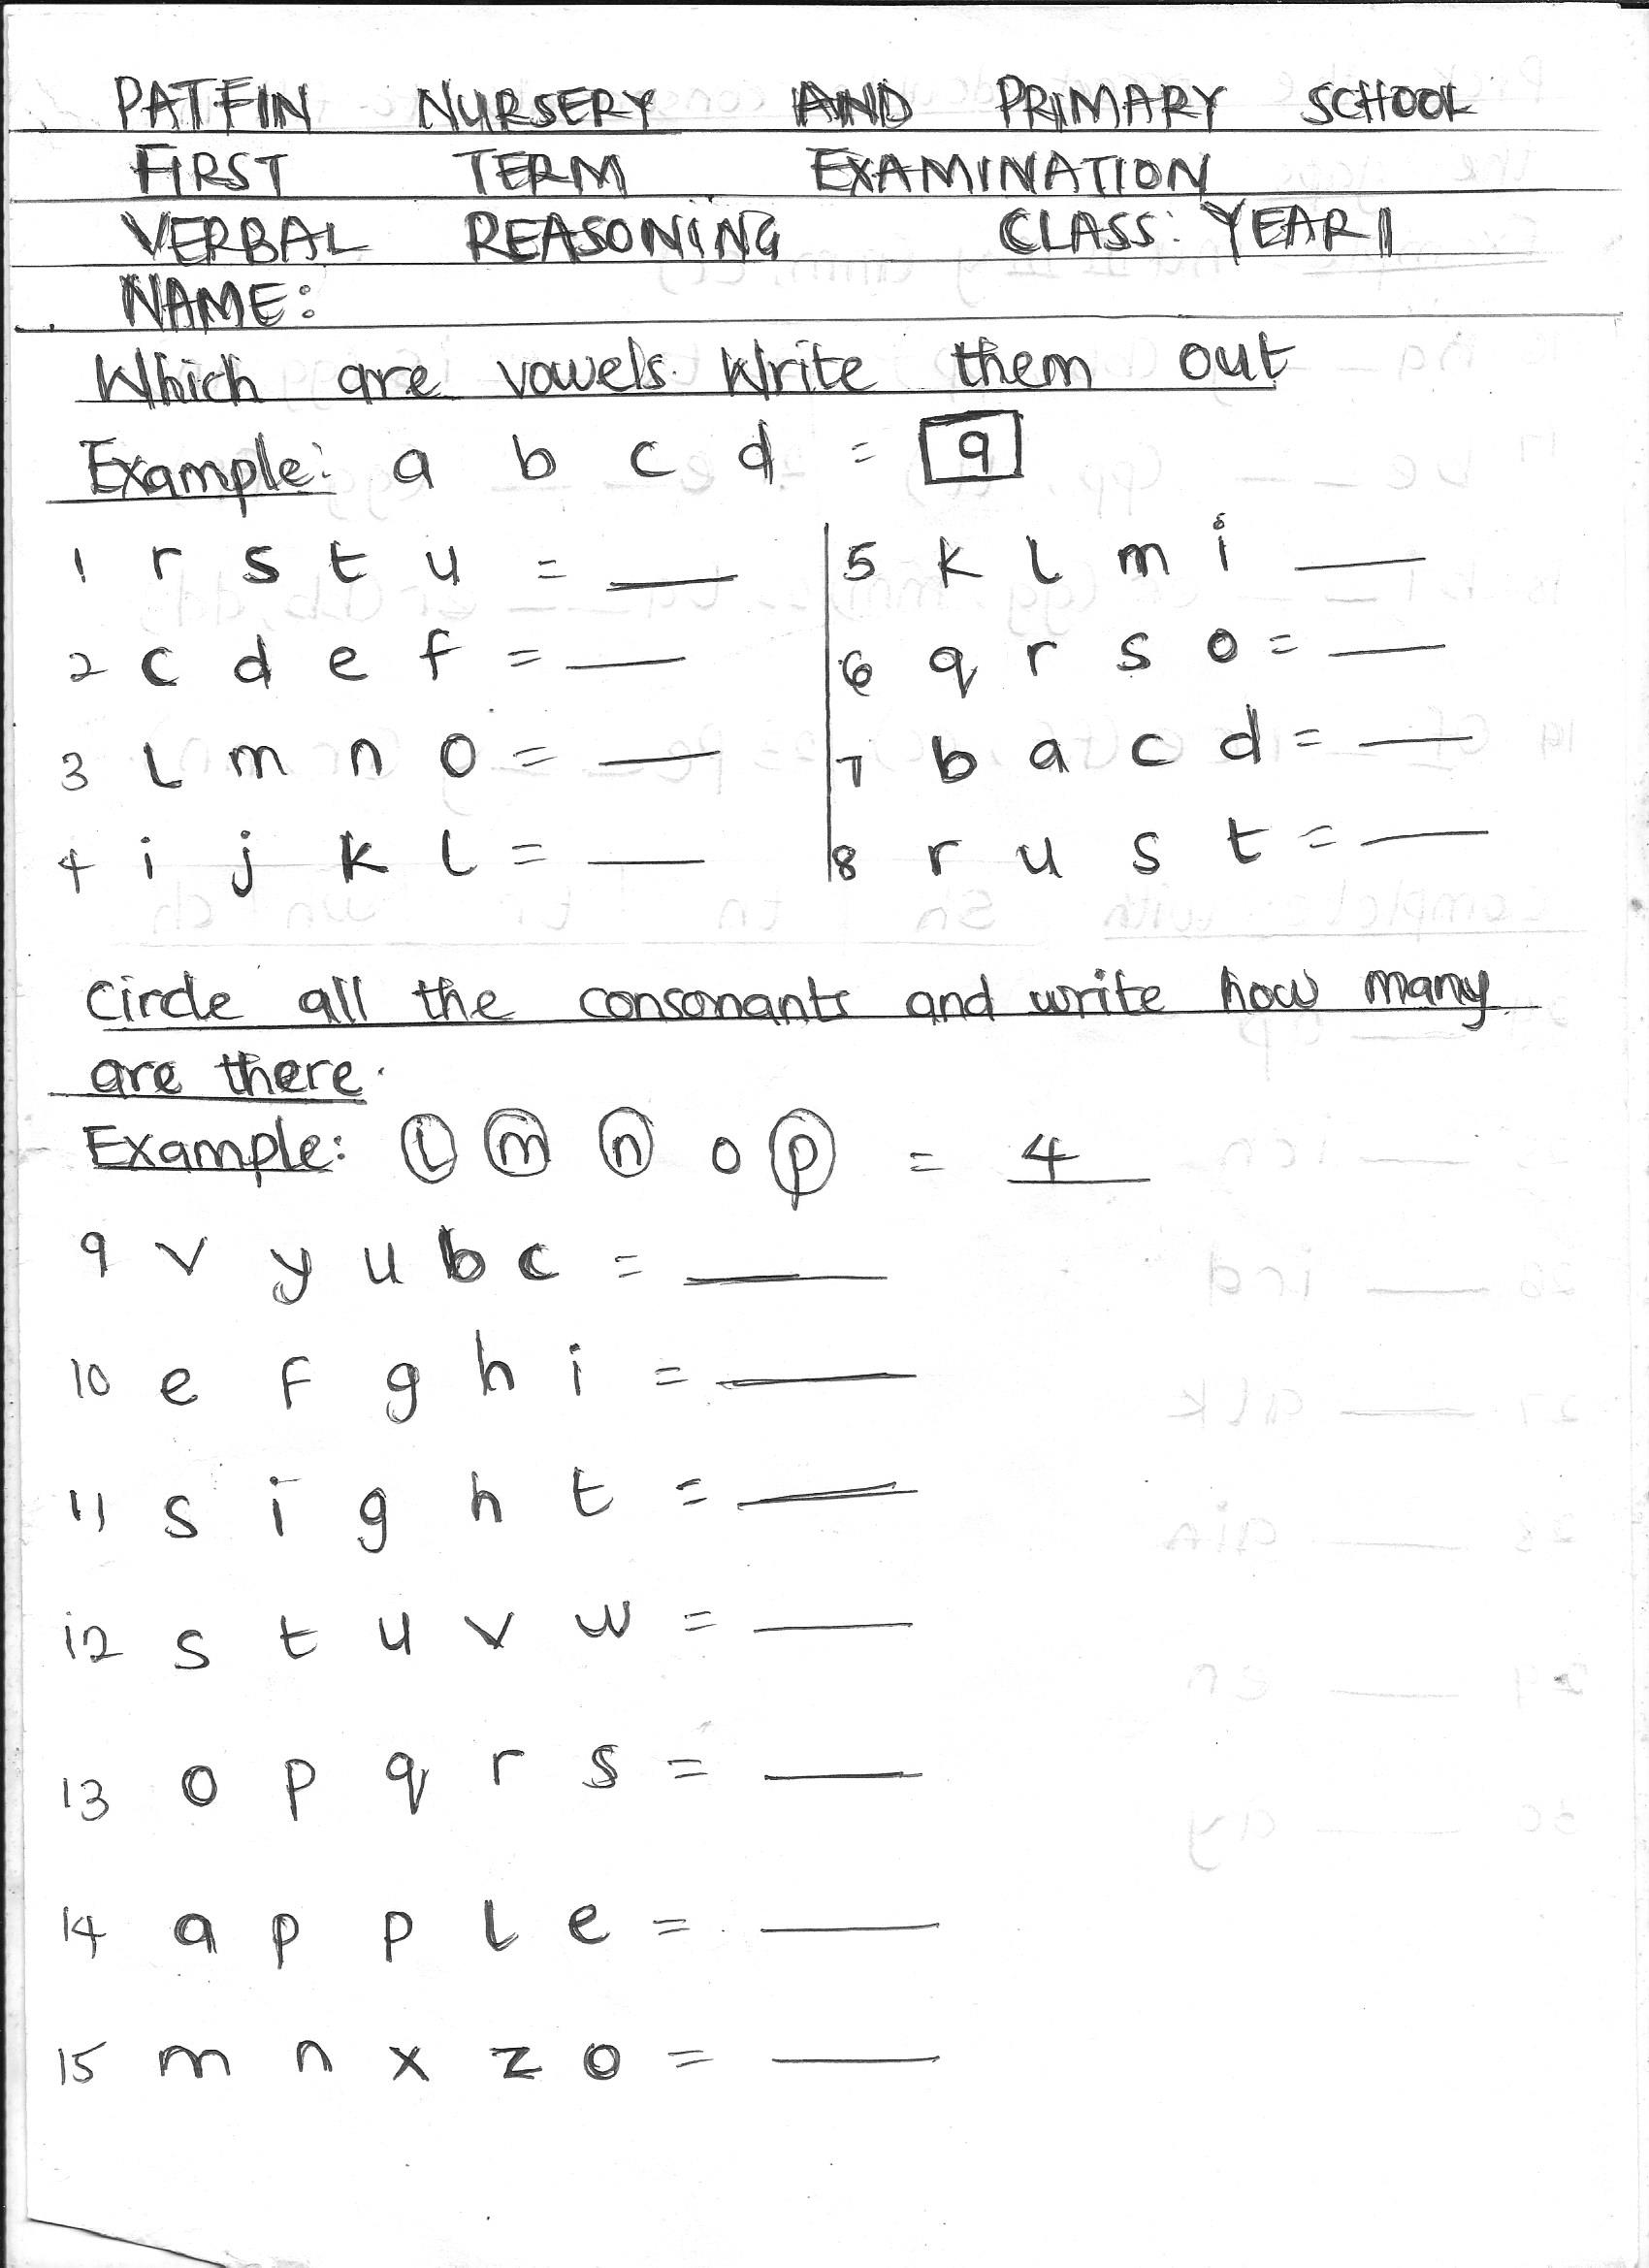 PATFIN NURSERY AND PRIMARY SCHOOL
FIRST TERM EXAMINATION
VERBAL REASONING CLASS: YEAR 1
NAME:
Which are vowels. Write them out
Example: a b c d = a
1 r s t u = ___
2 c d e f = ___
3 l m n o = ___
4 i j k l = ___
5 k l m i ___
6 q r s o = ___
7 b a c d = ___
8 r u s t = ___
Circle all the consonants and write how many
are there.
Example: l m n o p = 4
9 v y u b c = ___
10 e f g h i = ___
11 s i g h t = ___
12 s t u v w = ___
13 o p q r s = ___
14 a p p l e = ___
15 m n x z o = ___